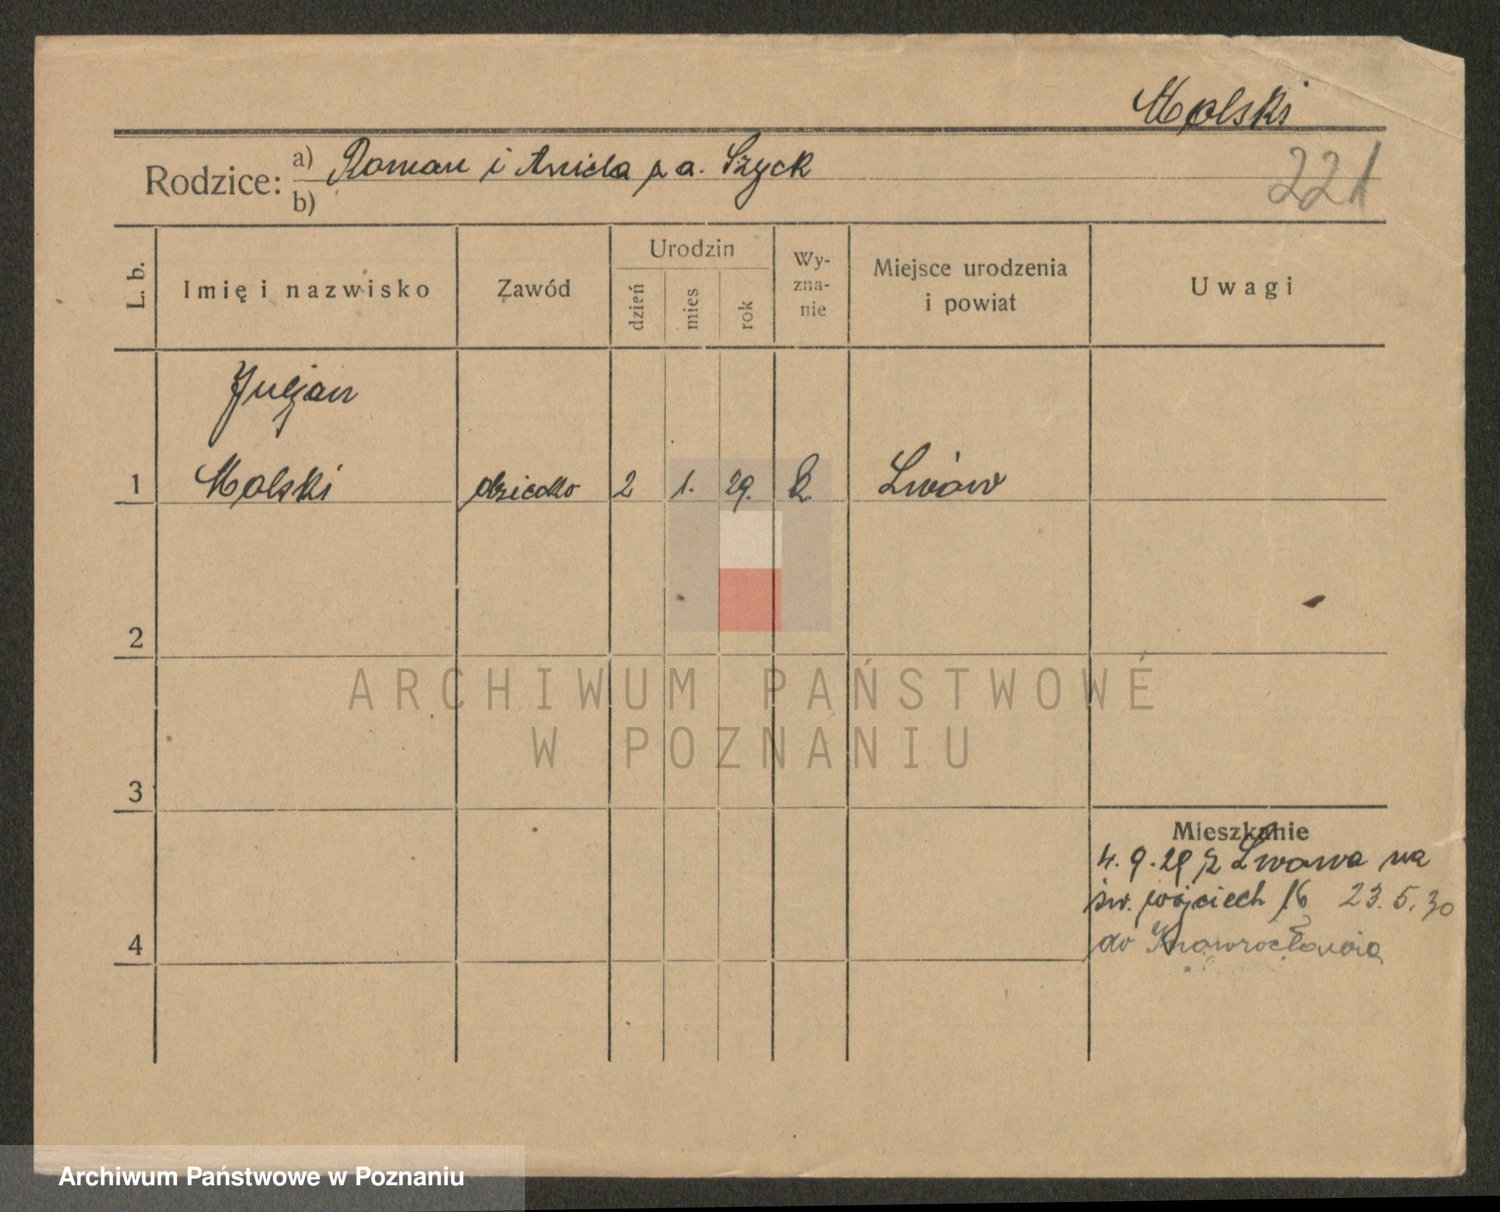 Molski
221
Rodzice: a) Roman i Aniela z d. Szyck
b)
L. b.
Imię i nazwisko
Zawód
Urodzin
dzień
mies
rok
Wy-
zna-
nie
Miejsce urodzenia
i powiat
Uwagi
Juljan
1 Molski dziecko 2 1. 29. k. Lwów
2
ARCHIWUM PAŃSTWOWE
W POZNANIU
3
Mieszkanie
4.9.29 z Lwowa na
św. wojciech 16 23.5.30
4 do Inowrocławia
Archiwum Państwowe w Poznaniu